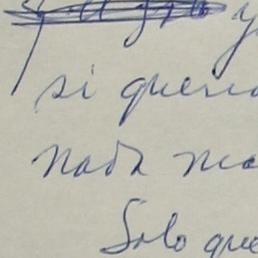 y
si queria
nada ma
Solo que